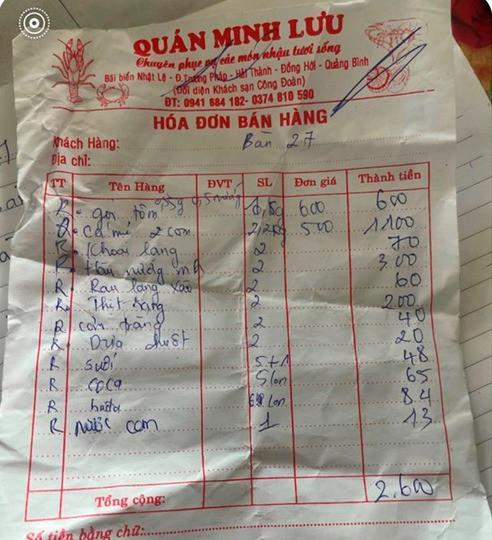 QUÁN MINH LƯU
Chuyên phục vụ các món nhậu tươi sống
Bãi biển Nhật Lệ - Đ.Trương Pháp - Hải Thành - Đồng Hới - Quảng Bình
(Đối diện Khách sạn Công Đoàn)
ĐT: 0941 684 182- 0374 810 590
HÓA ĐƠN BÁN HÀNG
Khách Hàng: Bàn 27
Địa chỉ:
TT Tên Hàng ĐVT SL Đơn giá Thành tiền
R gỏi tôm 600 600
R Cá mú 2 con 2,2kg 500 1100
R Khoai lang 2 70
R Hàu nướng mh 2 300
R Rau lang xào 2 60
R Thịt 2 200
R cơm trắng 2 40
R Dưa chuột 2 20
R suối 5+1 48
R coca 5 lon 65
R lon 84
R nước cam 1 13
Tổng cộng: 2.600
Số tiền bằng chữ: